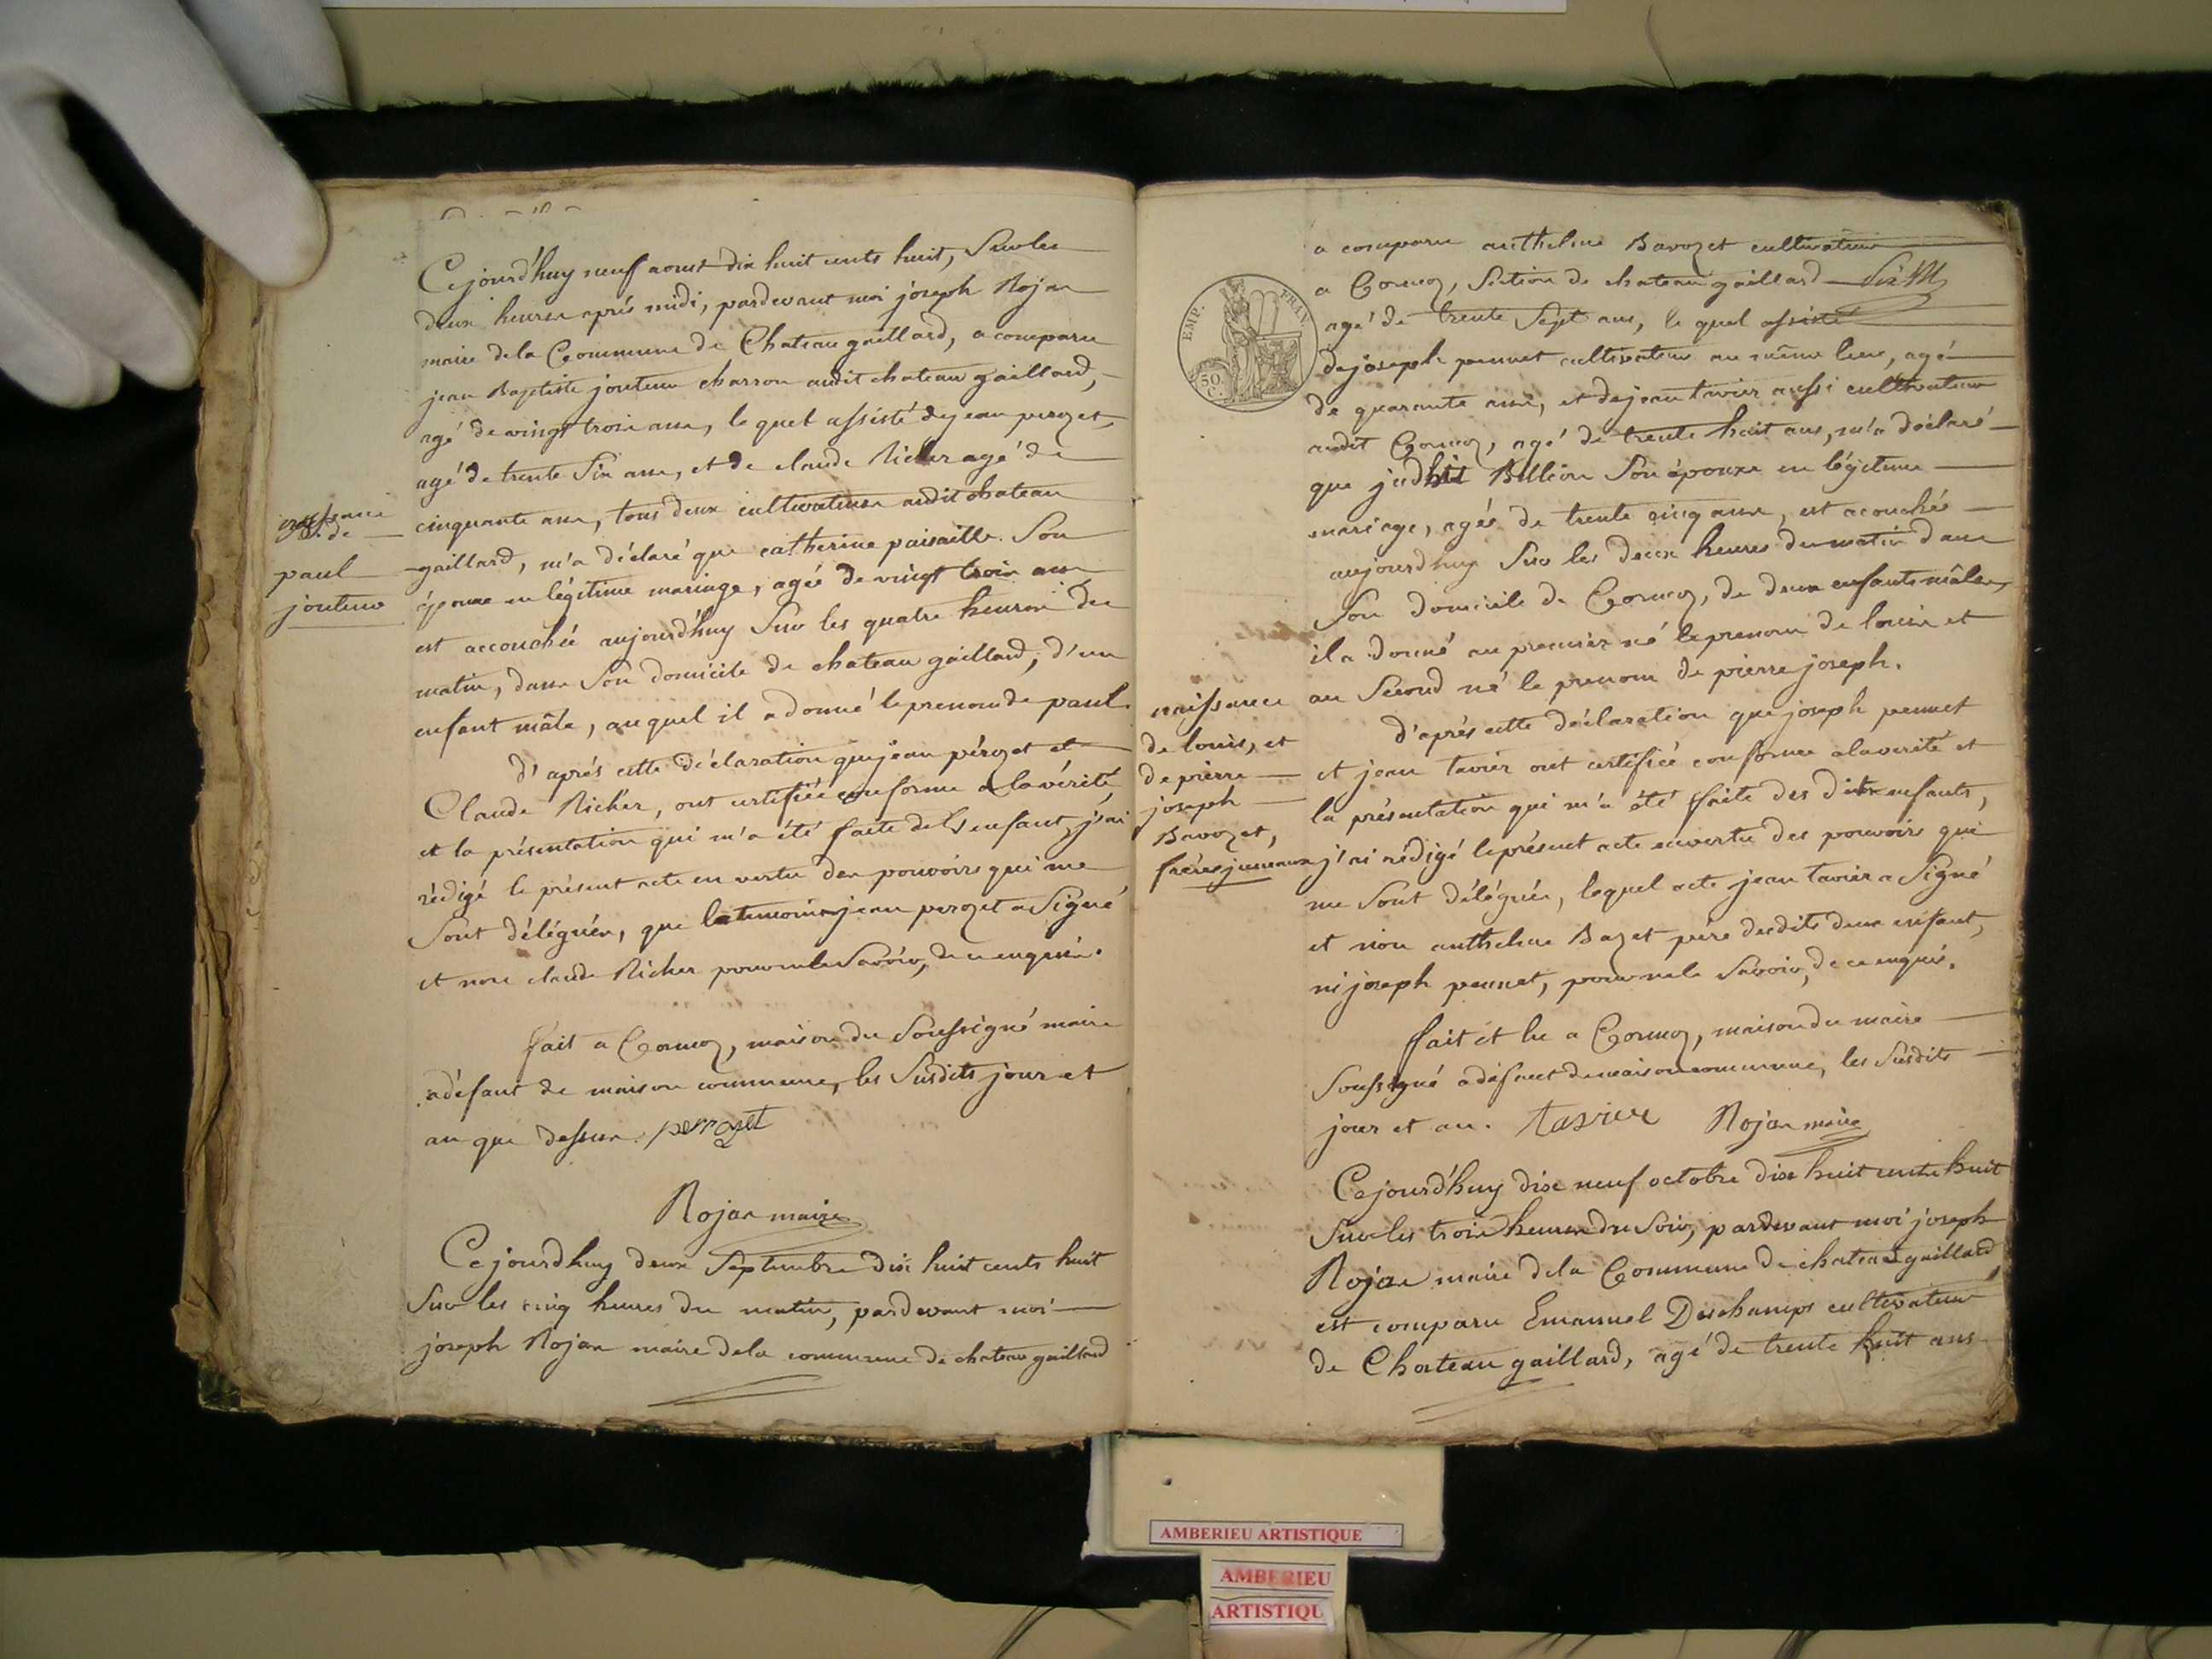 Cejourd'huy neuf aoust dix huit cents huit, Sur les
deux heures après midi, pardevant moi joseph Rojan
maire dela Commune de Chateaugaillard, a comparu
jean Baptiste jouteur charron audit chateau gaillard,
agé de vingt trois ans, le quel assisté dejean perozet,
agé de trente Six ans, et de claude Richer agé de
cinquante ans, tous deux cultivateurs audit chateau
gaillard, m'a déclaré que catherine paisaille Son
épouse en légitime mariage, agée de vingt trois ans
est accouchée aujourd'huy Sur les quatre heures du
matin, dans Son domicile de chateau gaillard, d'un
enfant mâle, auquel il a donné leprenom de paul.
naissance
de
paul
jouteur
d'après cette déclaration quejean pérozet et
Claude Richer, ont certifiée conforme a lavérité,
et la présentation qui m'a été faite del'enfant, j'ai
rédigé le présent acte en vertu des pouvoirs qui me
Sont délégués, que letemoin jean perozet a Signé
et non claude Richer pour nele Savoir, de ce enquis.
fait a Cormoz, maison du Soussigné maire
adéfaut de maison commune, les Susdits jour et
an que dessus. perrozet
Rojan maire
Cejourdhuy deux Septembre dix huit cents huit
Sur les cinq heures du matin, pardevant moi
joseph Rojan maire dela commune de chateau gaillard
a comparu anthelme Bavozet cultivateur
a Cormoz, Section de chateau gaillard
EMP. FRAN.
50
C.
agé de trente Sept ans, le quel assisté
dejoseph pennet cultivateur au même lieu, agé
de quarante ans, et dejean tavier aussi cultivateur
audit Cormoz, agé de trente huit ans, m'a déclaré
que judhit Bullion Son épouse en légitime
mariage, agée de trente cinq ans, est acouchée
aujourdhuy Sur les deux heures du matin dans
Son domicile de Cormoz, de deux enfants mâles,
il a donné au premier né le prenom de louis et
au Second né le prenom de pierre joseph.
naissance
de louis, et
de pierre
joseph
Bavozet,
frères jumeaux
d'après cette déclaration que joseph pennet
et jean tavier ont certifiée conforme alaverité et
la présentation qui m'a été faite des dits enfants,
j'ai rédigé leprésent acte envertu des pouvoirs qui
me Sont délégués, lequel acte jean tavier a Signé
et non anthelme Bazet père desdits deux enfant,
ni joseph pennet, pour nele Savoir, de ce enquis.
fait et lu a Cormoz, maison du maire
Soussigné adéfaut demaison commune, les Susdits
jour et an. tavier Rojan maire
Cejourd'huy dix neuf octobre dix huit cents huit
Sur les trois heures du Soir, pardevant moi joseph
Rojan maire dela Commune de chateau gaillard
est comparu Emanuel Deschamps cultivateur
de Chateau gaillard, agé de trente huit ans
AMBERIEU ARTISTIQUE
AMBERIEU
ARTISTIQU